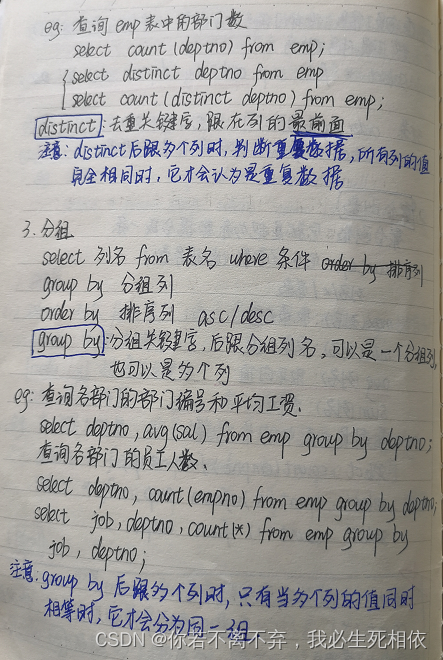 eg: 查询emp表中的部门数
select count(deptno) from emp;
select distinct deptno from emp
select count(distinct deptno) from emp;
distinct: 去重关键字, 跟在列的最前面
注意: distinct后跟多个列时, 判断重复数据, 所有列的值
完全相同时, 它才会认为是重复数据
3. 分组
select 列名 from 表名 where 条件 order by 排序列
group by 分组列
order by 排序列 asc/desc
group by: 分组关键字, 后跟分组列名, 可以是一个分组列,
也可以是多个列
eg: 查询各部门的部门编号和平均工资.
select deptno, avg(sal) from emp group by deptno;
查询各部门的员工人数.
select deptno, count(empno) from emp group by deptno;
select job, deptno, count(*) from emp group by
job, deptno;
注意. group by 后跟多个列时, 只有当多个列的值同时
相等时, 它才会分为同一组.
CSDN @你若不离不弃，我必生死相依